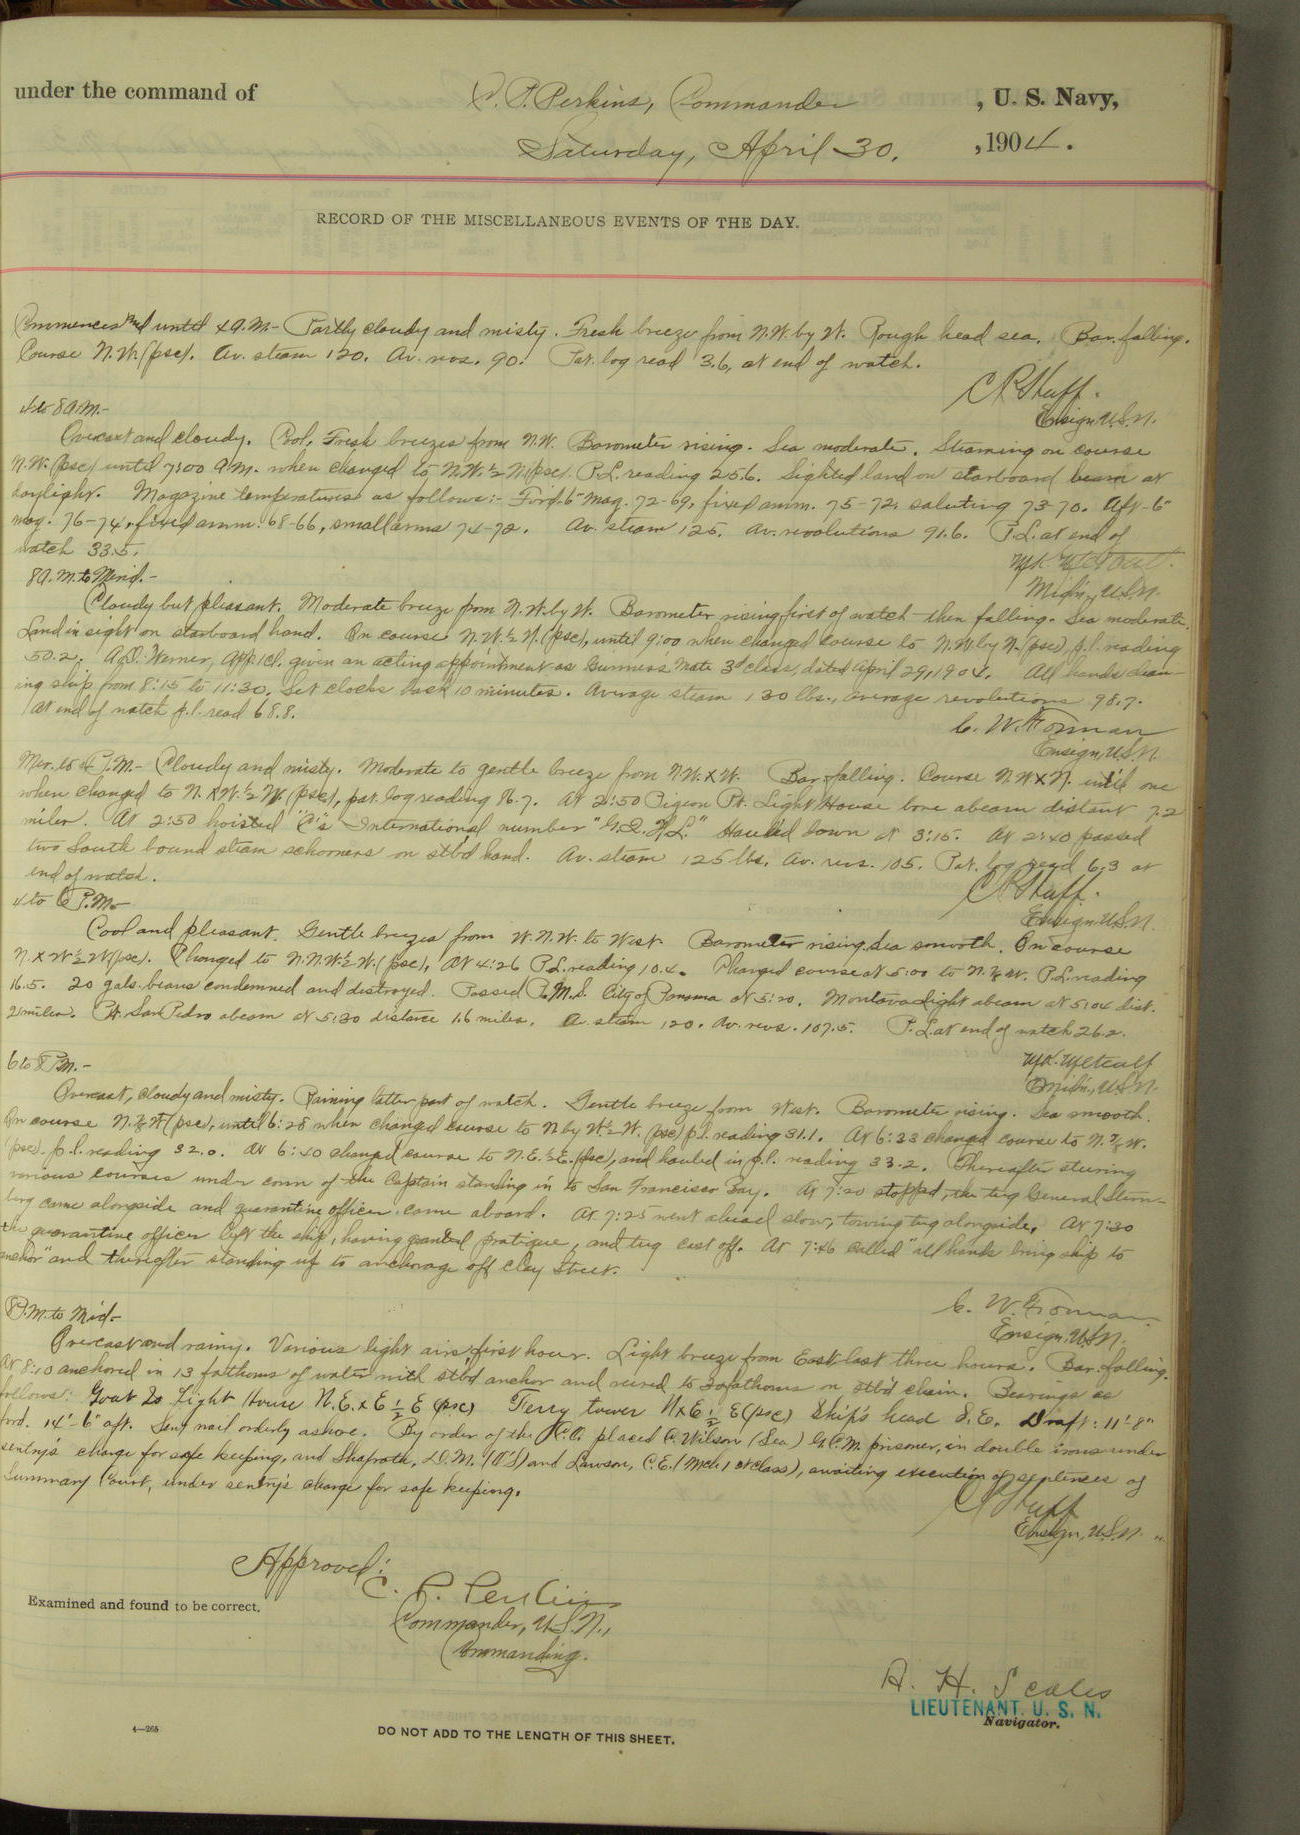 under the command of C. P. Perkins, Commander, U. S. Navy,
Saturday, April 30, 1904.
RECORD OF THE MISCELLANEOUS EVENTS OF THE DAY.
Commences and until 4 A.M.- Partly cloudy and misty. Fresh breeze from N.W. by W. Rough head sea. Bar. falling.
Course N.W. (psc). Av. steam 120. Av. revs. 90. Pat. log read 3.6, at end of watch.
Ensign, U.S.N.
4 to 8 A.M.-
Overcast and cloudy. Cool. Fresh breezes from N.W. Barometer rising. Sea moderate. Steaming on course
N.W. (psc) until 7:00 A.M. when changed to N.W. ½ N. (psc). P.L. reading 25.6. Sighted land on starboard beam at
daylight. Magazine temperatures as follows:- For'd-6" mag. 72-69, fixed amm. 75-72, saluting 73-70. Aft-6"
mag. 76-74, fixed amm. 68-66, small arms 74-72. Av. steam 125. Av. revolutions 91.6. P.L. at end of
watch 33.5.
W.K. Metcalf.
Mid'n., U.S.N.
8 A.M. to Merid.-
Cloudy but pleasant. Moderate breeze from N.W. by W. Barometer rising first of watch then falling. Sea moderate.
Land in sight on starboard hand. On course N.W. ½ N. (psc), until 9:00 when changed course to N.W. by N. (psc), p.l. reading
50.2. Warner, App. 1 cl. given an acting appointment as Gunners Mate 3d class, dated April 29, 1904. All hands clean-
ing ship from 8:15 to 11:30. Set clocks back 10 minutes. Average steam 130 lbs., average revolutions 98.7.
At end of watch p.l. read 68.8.
C. W. Forman
Ensign, U.S.N.
Mer. to 4 P.M.- Cloudy and misty. Moderate to gentle breeze from N.W. X W. Bar. falling. Course N.W X N. until one
when changed to N. X W. ½ W. (psc), pat. log reading 76.7. At 2:50 Pigeon Pt. Light House bore abeam distant 7.2
miles. At 2:50 hoisted "C's" International number Hauled down at 3:15. At 2:40 passed
two South bound steam schooners on stb'd hand. Av. steam 125 lbs, Av. revs. 105. Pat. log read 6.3 at
end of watch.
Ensign, U.S.N.
4 to 6 P.M.-
Cool and pleasant. Gentle breezes from W.N.W. to West. Barometer rising. Sea smooth. On course
N. X W ½ W (psc). Changed to N.N.W. ½ W. (psc), at 4:26 P.L. reading 10.4. Changed course at 5:00 to N. ⅞ W. P.L. reading
16.5. 20 gals. beans condemned and destroyed. Passed P.M.S. City of Panama at 5:20. Montara Light abeam at 5:04 dist.
2 miles. Pt. San Pedro abeam at 5:30 distance 1.6 miles. Av. steam 120. Av. revs. 107.5. P.L. at end of watch 26.2.
W.K. Metcalf
Mid'n., U.S.N.
6 to 8 P.M.-
Overcast, cloudy and misty. Raining latter part of watch. Gentle breeze from West. Barometer rising. Sea smooth.
On course N. ⅞ W (psc), until 6:28 when changed course to N by W. ½ W. (psc) p.l. reading 31.1. At 6:33 changed course to N. ⅞ W.
(psc). p.l. reading 32.0. At 6:40 changed course to N.E. ½ E. (psc), and hauled in p.l. reading 33.2. Thereafter steering
various courses under conn of the Captain standing in to San Francisco Bay. At 7:20 stopped, the tug General Stern-
berg came alongside and quarantine officer came aboard. At 7:25 went ahead slow, towing tug alongside. At 7:30
the quarantine officer left the ship, having granted pratique, and tug cast off. At 7:46 called "all hands bring ship to
anchor" and thereafter standing up to anchorage off Clay Street.
C. W. Forman.
Ensign, U.S.N.
8 P.M. to Mid.-
Overcast and rainy. Various light airs first hour. Light breeze from East last three hours. Bar. falling.
At 8:10 anchored in 13 fathoms of water with stb'd anchor and veered to 30 fathoms on stb'd chain. Bearings as
follows: Goat Is Light House N.E. x E ½ E (psc) Ferry tower N x E ½ E (psc) Ship's head S.E. Draft: 11'-8"
ford. 14'-6" aft. Sent mail orderly ashore. By order of the C.O. placed Wilson (Sea.) G.C.M. prisoner, in double irons under
sentry's charge for safe keeping, and Shafroth, and Lawson, C.E. (Mch. 1st Class), awaiting execution of sentences of
Summary Court, under sentry's charge for safe keeping.
Ensign, U.S.N.
Approved:
C. P. Perkins
Examined and found to be correct.
Commander, U.S.N.,
Commanding.
A. H. Scales
LIEUTENANT, U. S. N.
Navigator.
4—265
DO NOT ADD TO THE LENGTH OF THIS SHEET.